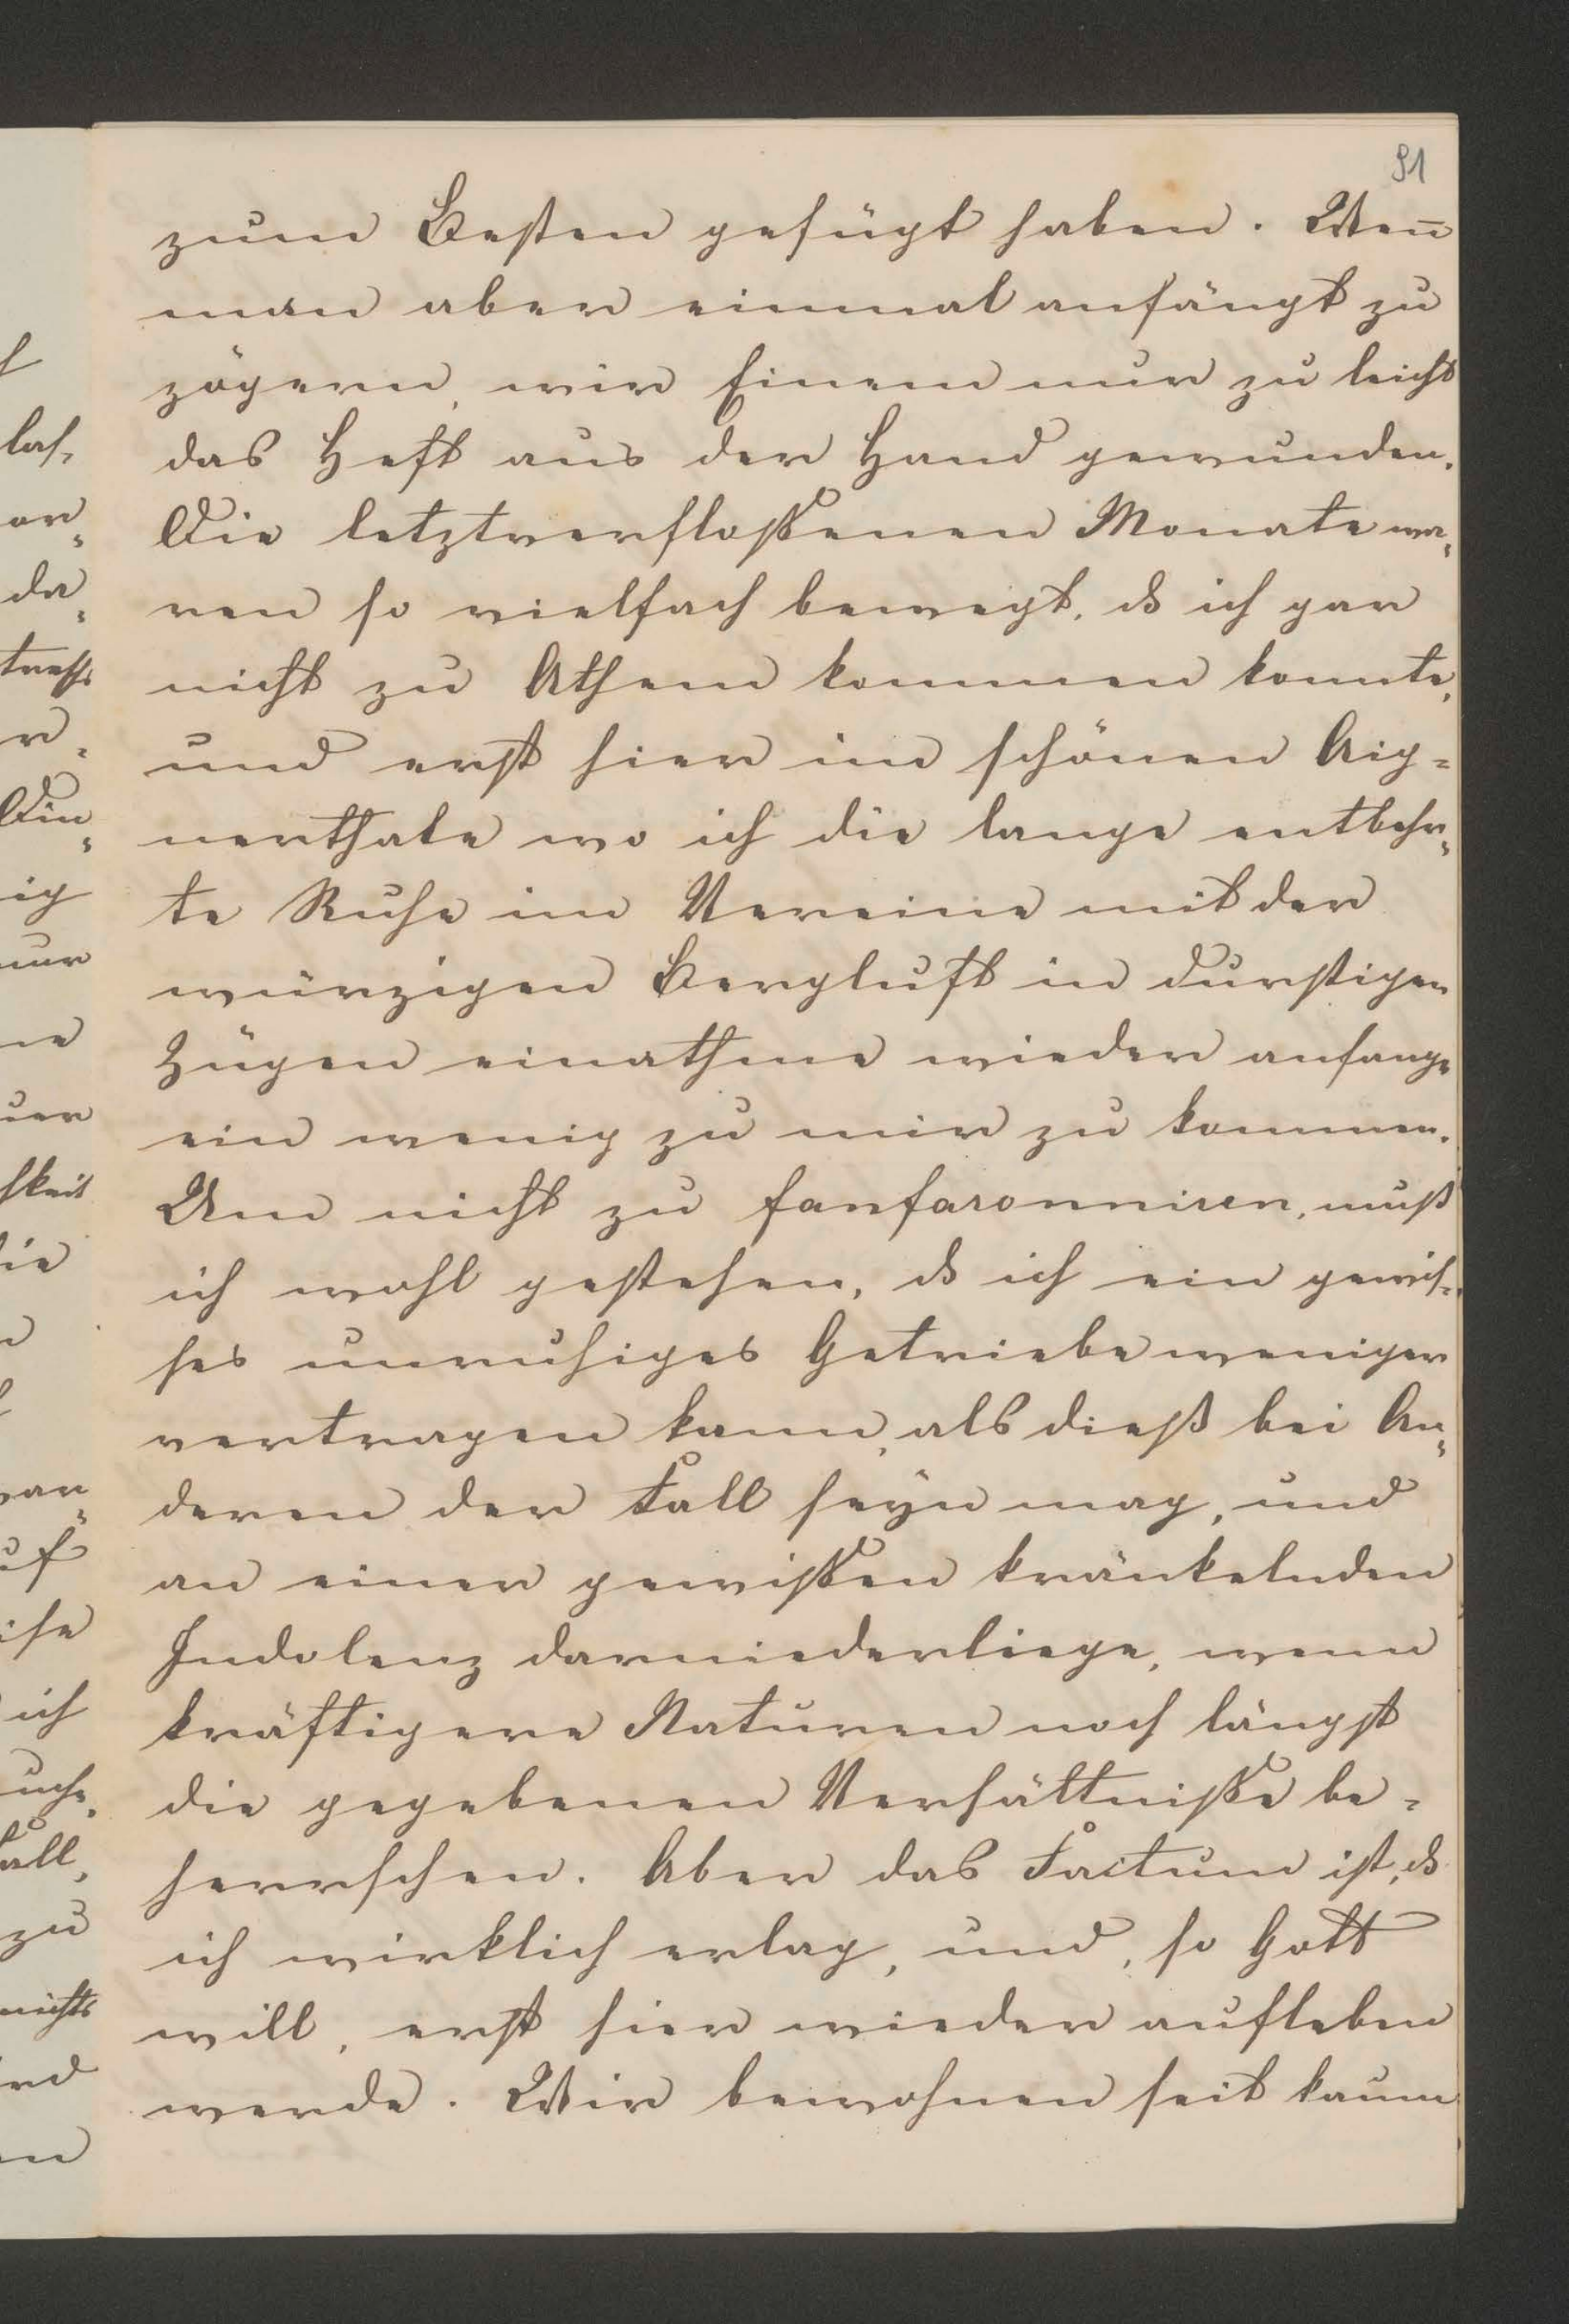 91
zum Besten gefügt haben. Wen̅
man aber einmal anfängt zu
zögern, wir Einem nur zu leicht
das Heft aus der Hand gewunden.
Die letztverfloßenen Monate wa=
ren so vielfach bewegt, ds ich gar
nicht zu Athem kommen konnte,
und erst hier im schönen Aig=
nerthale wo ich die lange entbehr=
te Ruhe im Vereine mit der
würzigen Bergluft in durstigen
Zügen einathme wieder anfange
ein wenig zu mir zu kommen.
Um nicht zu fanfaronniren, muß
ich wohl gestehen, ds ich ein gewis=
ses unruhiges Getriebe weniger
vertragen kann, als dieß bei An=
deren der Fall seyn mag, und
an einer gewißen kränkelnden
Indolenz darniederliege, wenn
kräftigere Naturen noch längst
die gegebenen Verhältniße be=
herrschen. Aber das Factum ist, ds
ich wirklich erlag, und, so Gott
will, erst hier wieder aufleben
werde. Wir bewohnen seit kaum